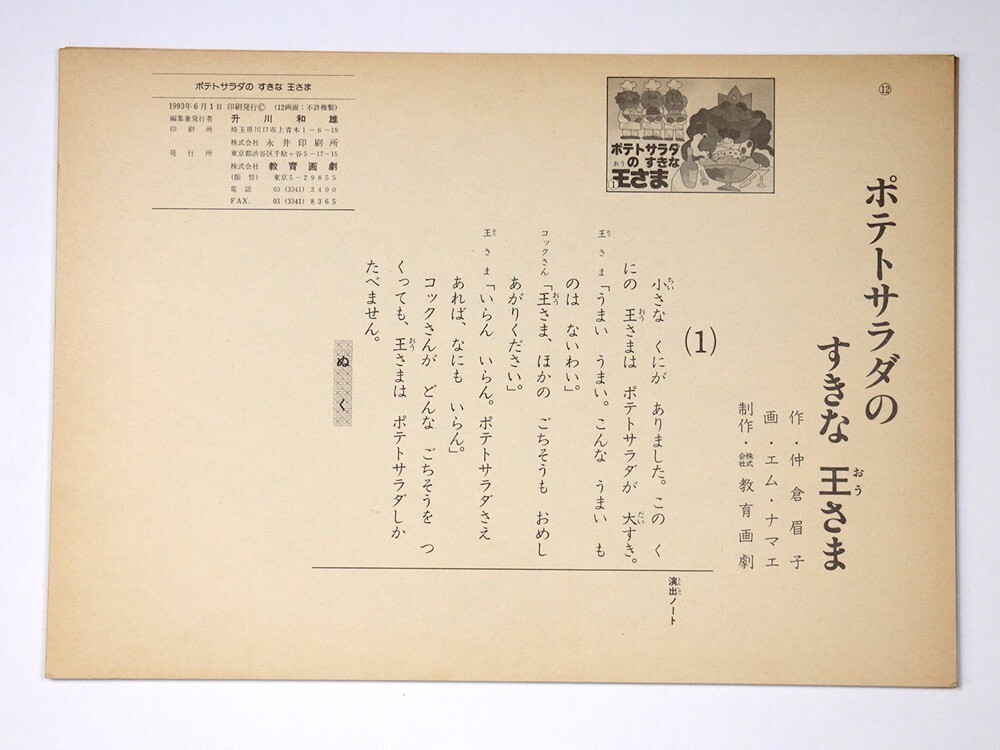 ⑫
ポテトサラダの
すきな 王さま
おう
作・仲倉眉子
画・エム・ナマエ
制作・株式会社教育画劇
ポテトサラダ
の すきな
おう
王さま
1
(1)
小さな くにが ありました。この く
ちい
にの 王さまは ポテトサラダが 大すき。
おう だい
王さま「うまい うまい。こんな うまい も
おう
のは ないわい」
コックさん「王さま、ほかの ごちそうも おめし
おう
あがりください」
王さま「いらん いらん。ポテトサラダさえ
おう
あれば、なにも いらん」
コックさんが どんな ごちそうを つ
くっても、王さまは ポテトサラダしか
おう
たべません。
ぬく
演出ノート
ポテトサラダの すきな 王さま
1993年6月1日 印刷発行Ⓒ (12画面:不許複製)
編集兼発行者 升川和雄
印刷所 埼玉県川口市上青木1-6-19
株式会社 永井印刷所
発行所 東京都渋谷区千駄ヶ谷5-17-15
株式会社 教育画劇
(振替) 東京5-29855
電話 03 (3341) 3400
FAX. 03 (3341) 8365